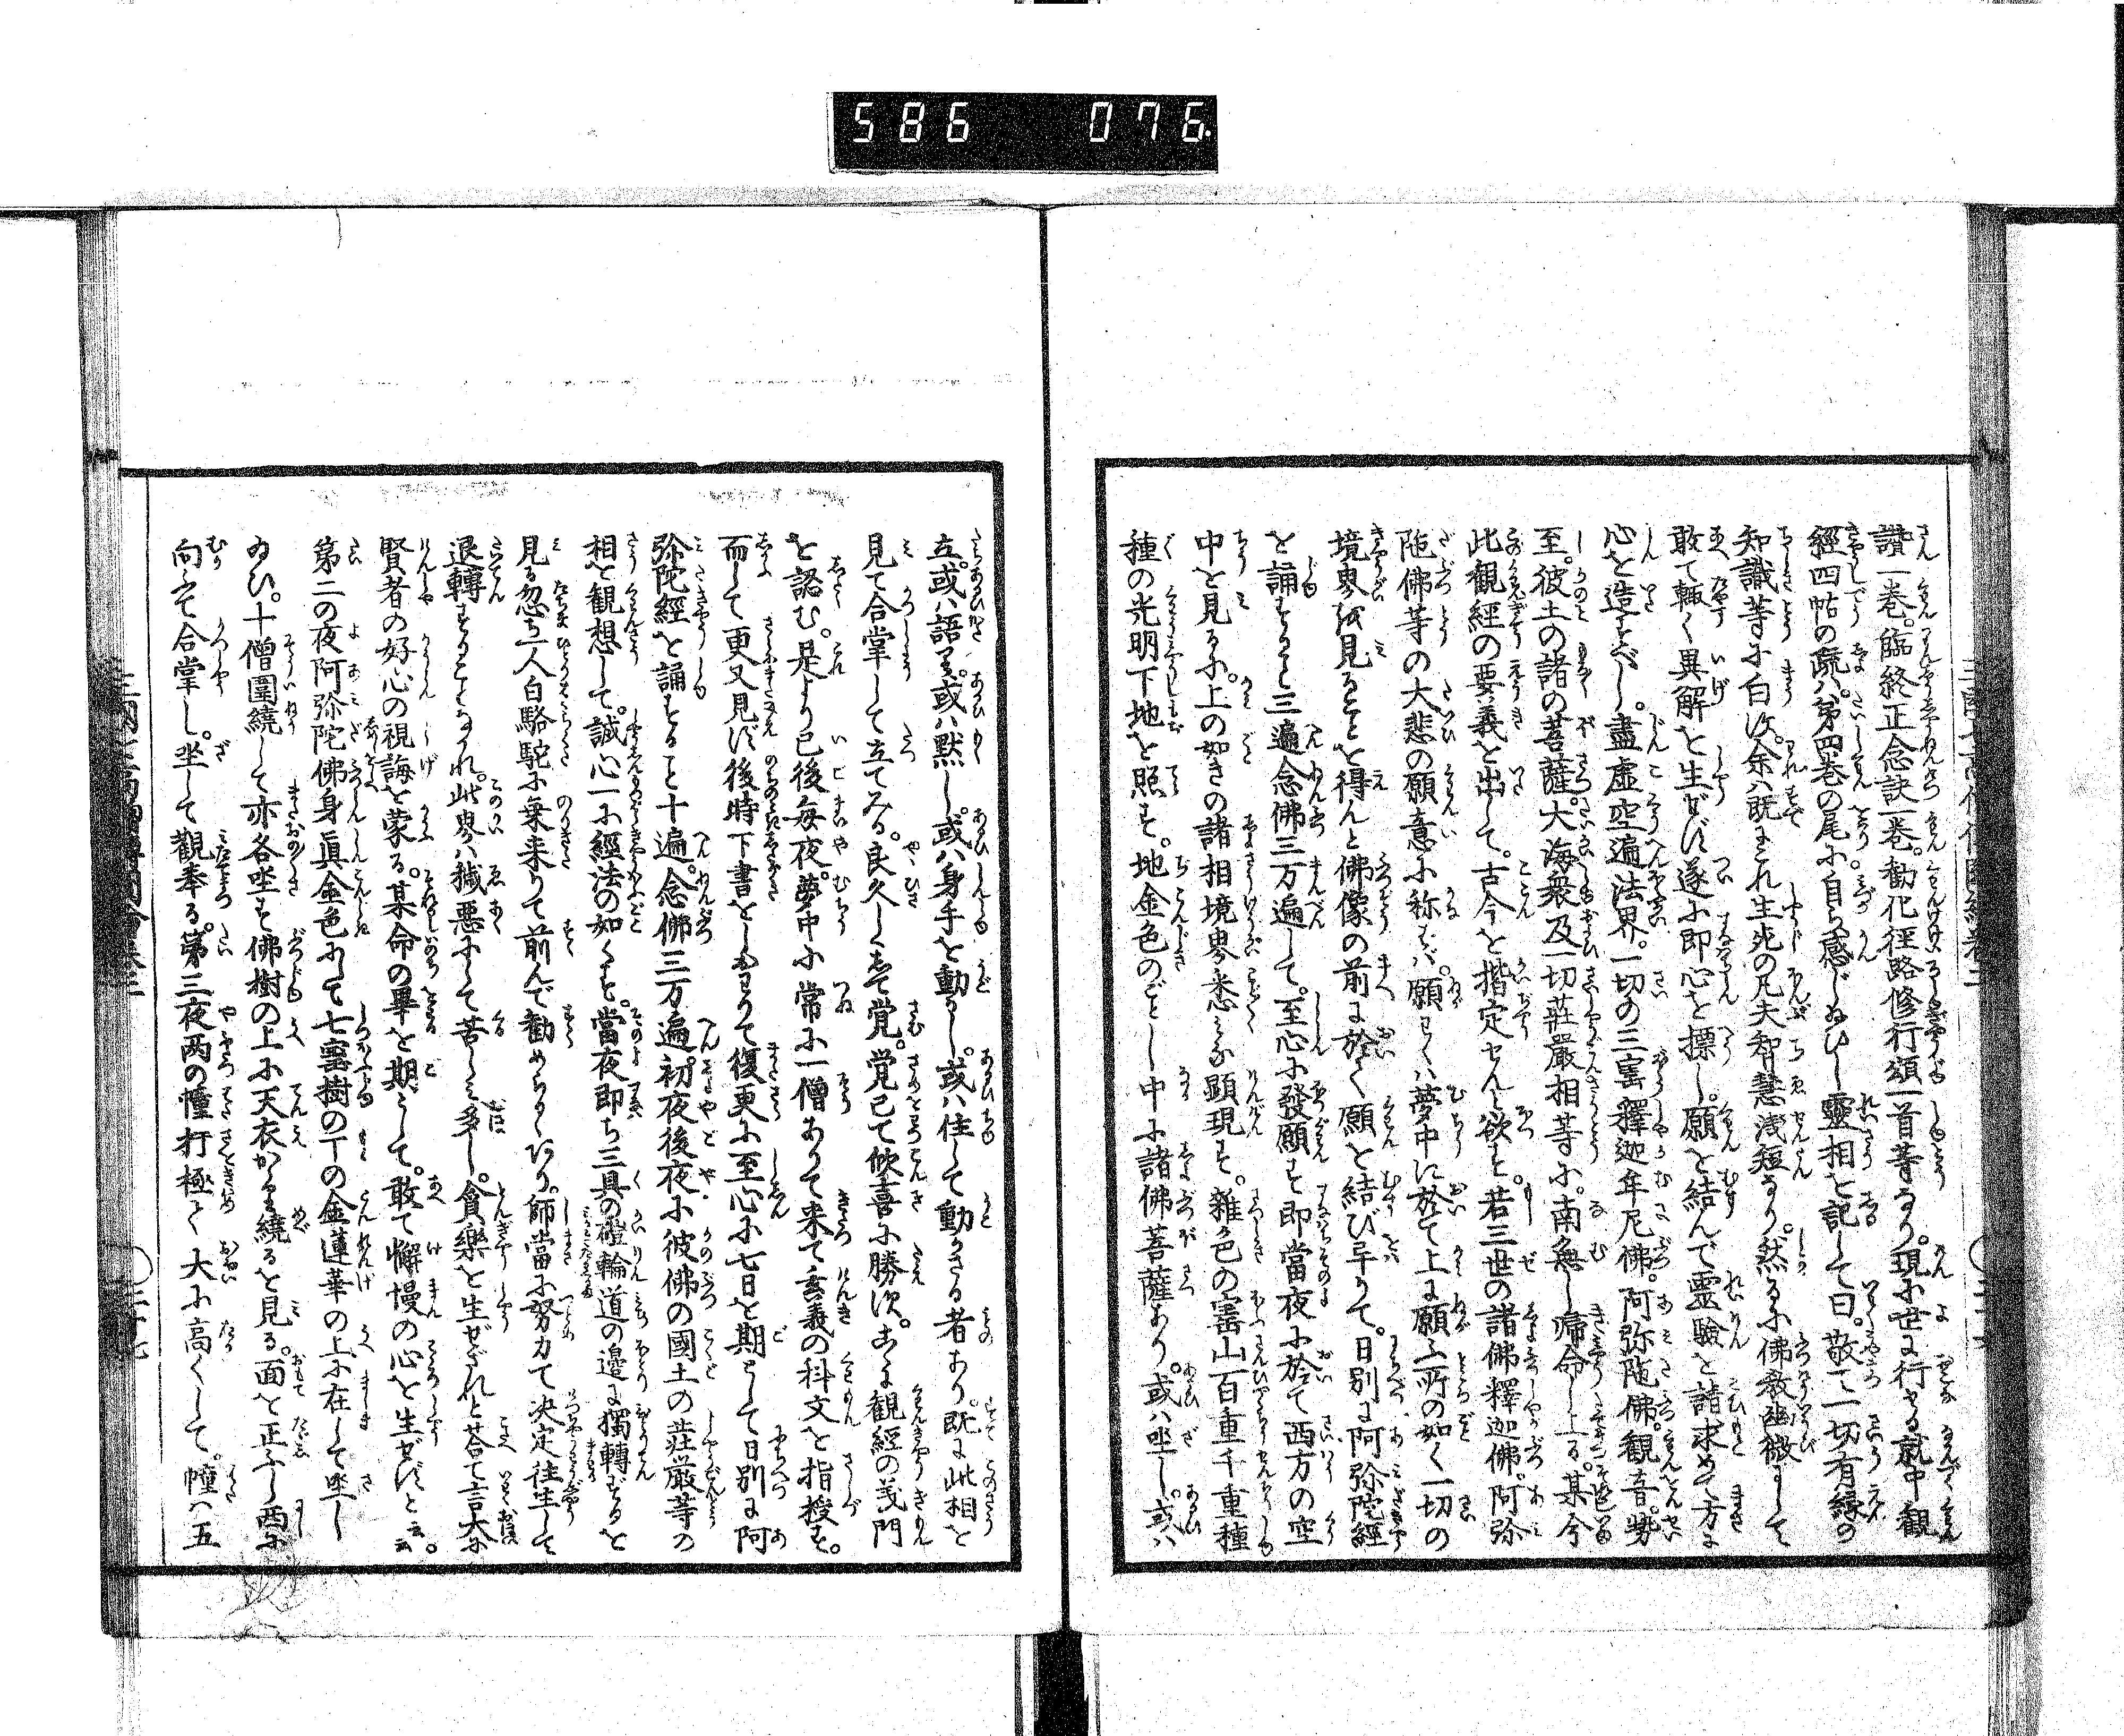 586 076.
讃一巻。臨終正念訣一巻。勧化径路修行頌一首等なり。現に世に行せる就中観
經四帖の疏ハ。第四巻の尾に。自ら感じゐひし靈相を記して曰。敬て一切有縁の
知識等に白次。余ハ既にこれ生死の凡夫智慧浅短なり。然るに佛教幽微にして
敢て輙く異解を生ぜば遂に即心を摽し。願を結んで靈驗を請求めて方に
心を造すべし。盡虚空遍法界。一切の三寳釋迦牟尼佛。阿弥陀佛。觀音。勢
至。彼土の諸の菩薩。大海衆及一切荘嚴相等に。南無し帰命し上る。某今
此観經の要義を出して。古今を揩定せんと欲す。若三世の諸佛釋迦佛。阿弥
陀佛等の大悲の願意に称ハゞ。願くハ夢中に於て上に願ふ所の如く一切の
境界を見ることを得んと佛像の前に於く願を結び畢りて。日別に阿弥陀經
を誦すること三遍念佛三万遍して。至心に發願す即當夜に於て西方の空
中を見るに。上の如きの諸相境界悉く皆顕現す。雜色の寳山百重千重種
種の光明下地を照す。地金色のごとし中に諸佛菩薩あり。或ハ坐し。或ハ
立。或ハ語り。或ハ黙し。或ハ身手を動かし。或ハ住して動かざる者あり。既に此相を
見て合掌して立てみる。良久しくして覚。覚已て欣喜に勝次。こゝに観經の義門
を認む。是より已後毎夜。夢中に常に一僧ありて来て玄義の科文を指授す。
而して更又見ず後時下書をしをはりて復更に至心に七日を期として日別に阿
弥陀經を誦すること十遍。念佛三万遍。初夜後夜に彼佛の國土の莊嚴等の
相を観想して。誠心一に經法の如くす。當夜即ち三具の磑輪道の邊に獨轉ずるを
見る忽ち一人白駱駝に乗来りて前んで勧めらるゝあり。師當に努力て决定往生して
退轉することなかれ。此界ハ穢惡にして苦しミ多し。貪樂を生ぜざれと荅て言大に
賢者の好心の視誨を蒙る。某命の畢を期として。敢て懈慢の心を生ぜじと云云。
第二の夜阿弥陀佛身真金色にして七寳樹の下の金蓮華の上に在して坐し
ゐひ。十僧圍繞して亦各坐す佛樹の上に天衣かゝり繞るを見る。面を正ふし西に
向ふて合掌し。坐して觀奉る。第三夜両の幢杆極て大に高くして。幢ハ五